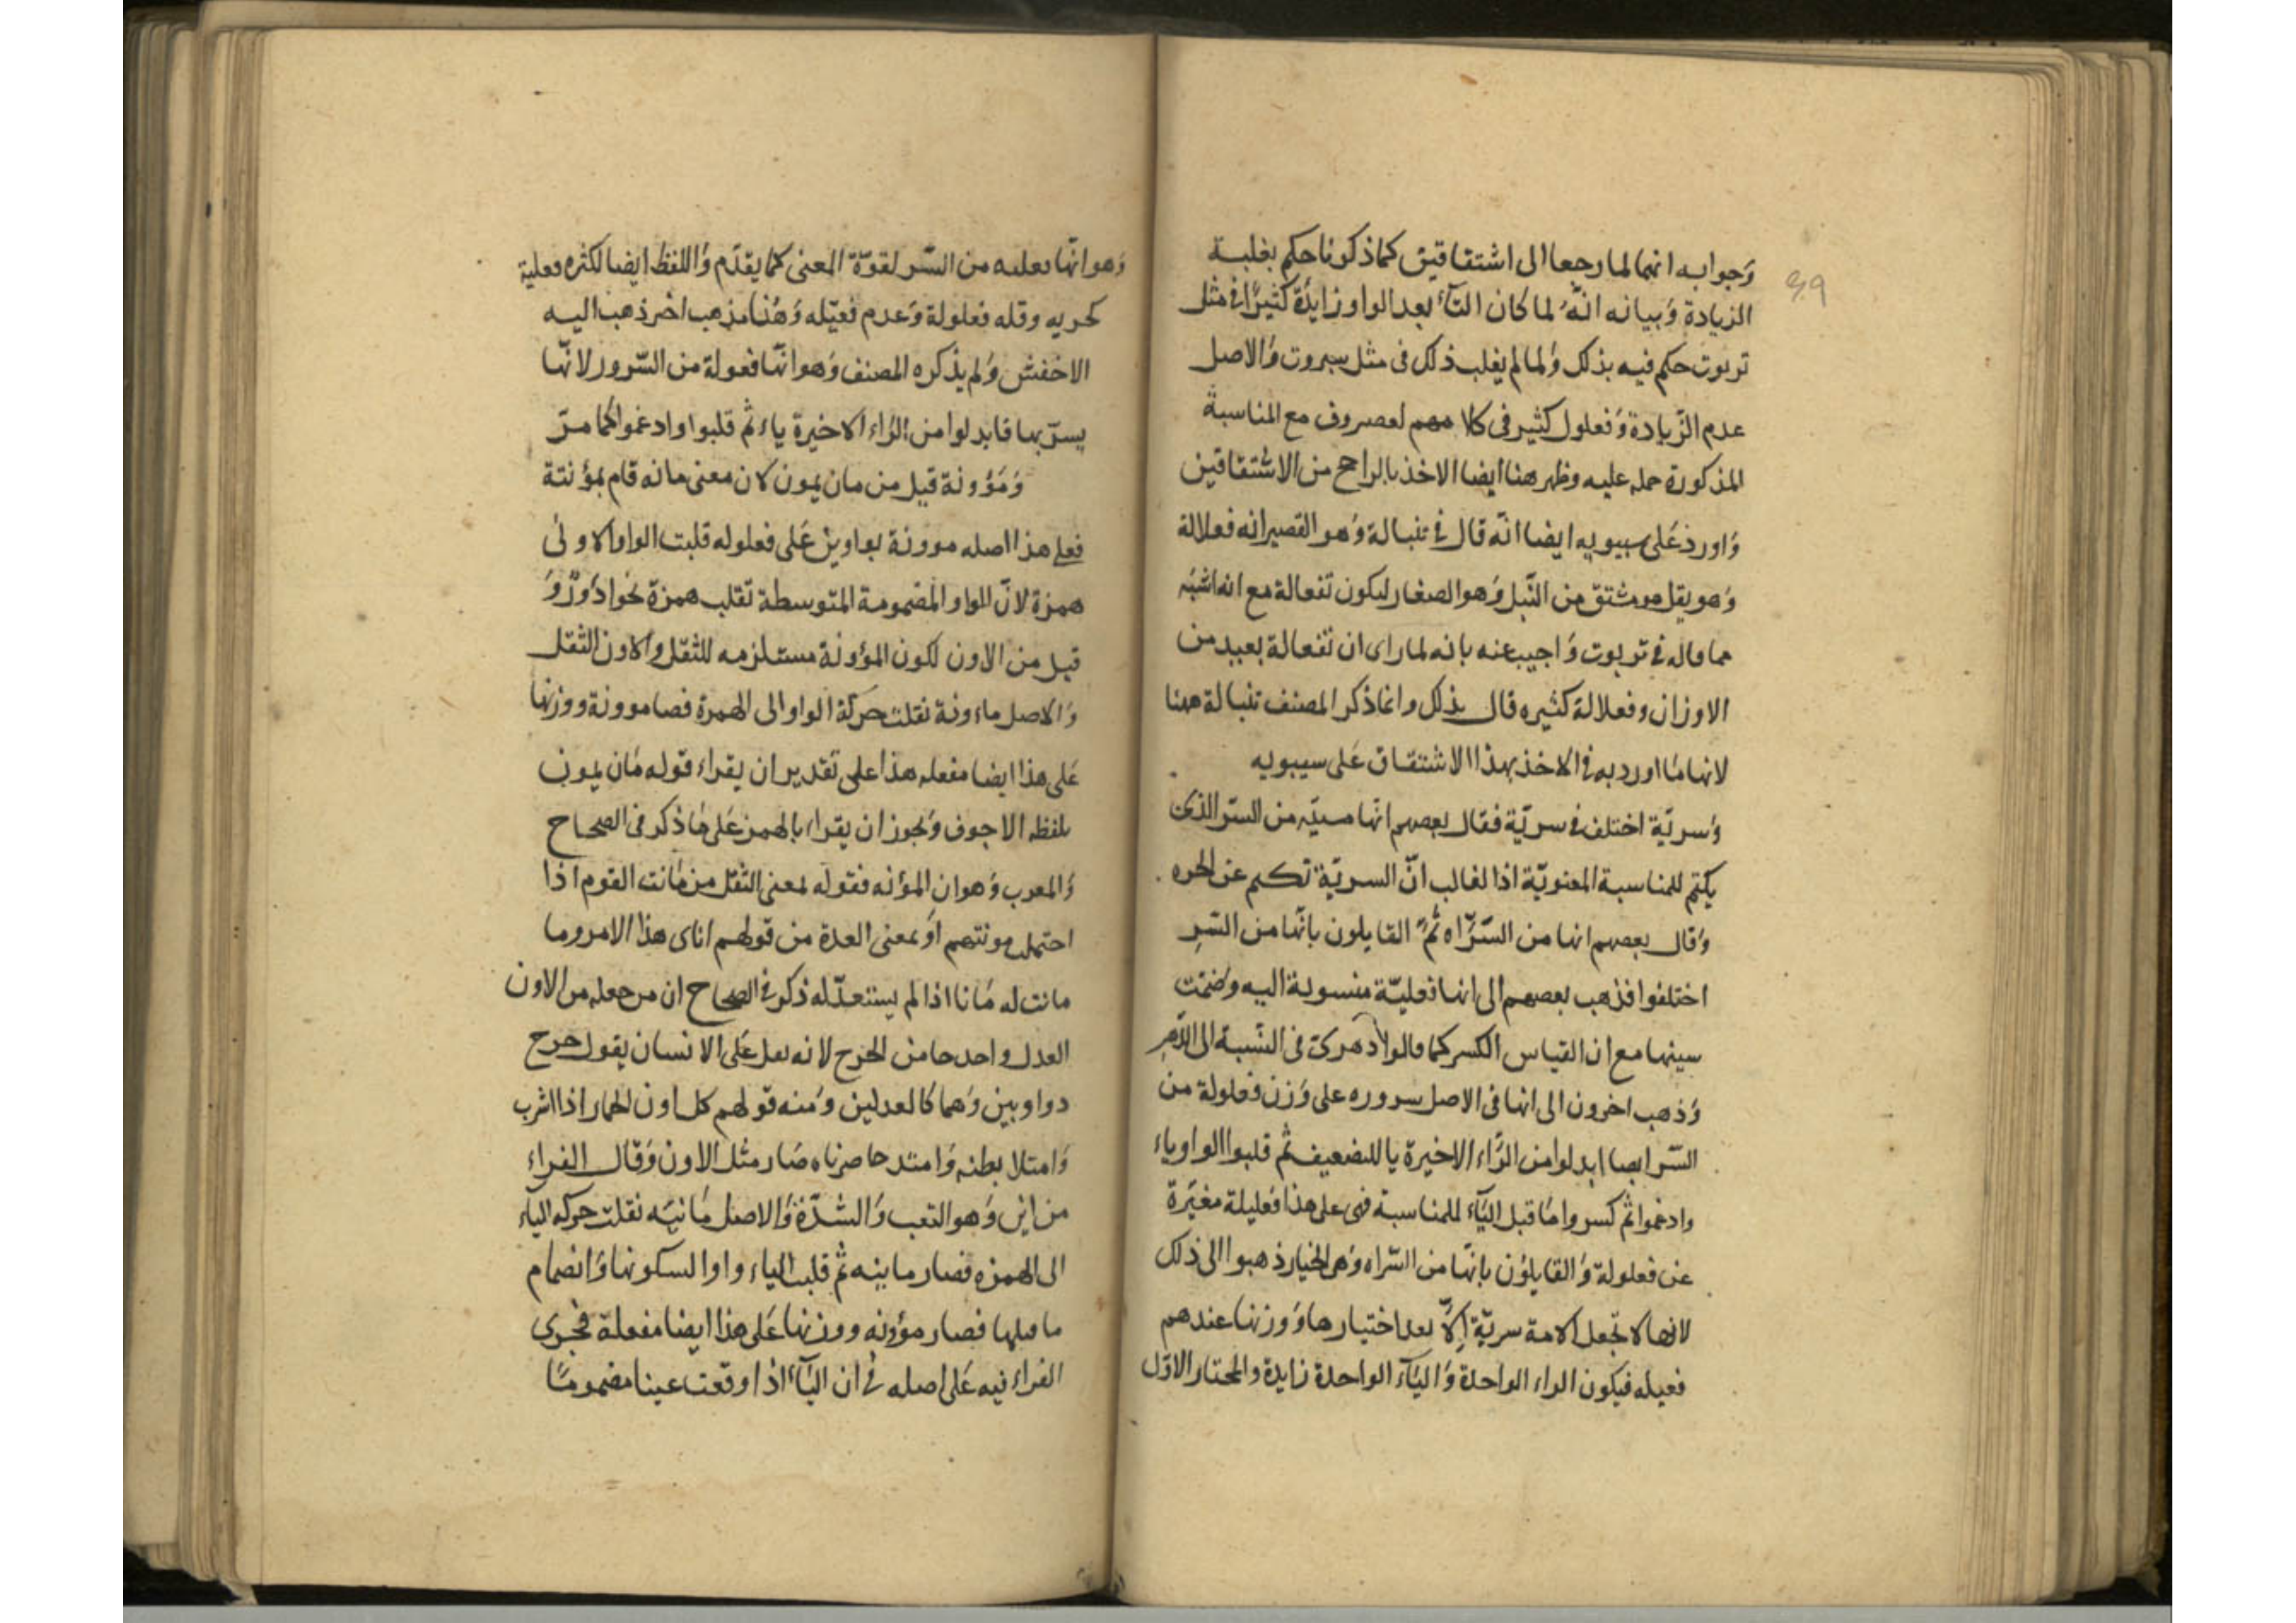 وَجوابه انهما لما رجعا الى اشتقاقين كما ذكرنا حكم بغلبة
الزيادة وَبيانه انّهُ لما كان التآء بعد الواو زايدة كثيرًا في مثل
تربوت حكم فيه بذلك وَلما لم يغلب ذلك فى مثل سبروت وَالاصل
عدم الزّيادة وَفعلول كثير فى كلامهم لعصروف مع المناسبة
المذكورة حمله عليه وظهر هنا ايضا الاخذ بالراجح من الاشتقاقين
وَاورد عَلى سيبويه ايضا انّه قال في تنبالة وَهو القصير انه فعلالة
وَهو يقل هو مشتق من النّبل وَهو الصغار ليكون تفعالة مع انه اشبَه
مما قاله في تربوت وَاجيب عنه بانه لما راى ان تفعالة بعيد من
الاوزان وفعلالة كثيره قال بذلك وانما ذكر المصنف تنبالة ههنا
لانها مما اورد به في الاخذ بهذا الاشتقاق عَلى سيبويه
وَسريّة اختلف في سريّة فقال بعضهم انّها من السّر الذى
يكتم للمناسبة المعنويّة اذ الغالب انّ السريّة تكتم عن الحره
وَقال بعضهم انها من السَّرَّاه ثُمَّ القايلون بانّها من السّر
اختلفوا فذهب بعضهم الى انها فعليّة منسوبة اليه وَضمّت
سينها مع ان القياس الكسر كما قالوا دهرىّ فى النّسبة الى الدّهر
وَذهب اخرون الى انها فى الاصل سروره على وَزن فعلولة من
السّر ايضا ابدلوا من الرّاء الاخيرة يا للتضعيف ثم قلبوا الواو ياء
وادغموا ثم كسروا مَا قبل اليَآء للمناسبة فهى على هذا فعليلة مغيّرة
عن فعلولة وَالقايلوُن بانّها من السّراه وَهى الخيار ذهبوا الى ذلك
لانها لا تجعل الامة سريّة اِلاّ بعد اختيارها وَوزنها عندهم
فعيله فيكون الراء الواحدة وَاليَآء الواحدة زايدة والمختار الاوّل
وَهو انّها فعليه من السّر لقوّة المعنى كما يقدّم وَاللفظ ايضا لكثره فعلية
كحريه وقله فعلولة وَعدم فعيّله وَهُنا مذهب اخر ذهب اليه
الاخفش وَلم يذكره المصنف وَهو انّها فعولة من السّرور لانّها
يسرّ بها فابدلوا من الرّاء الاخيرة ياء ثم قلبوا وادغموا كما مرّ
وَمَؤونة قيل من مان يمون لان معنى مانه قام بمؤنتة
فعلى هذا اصله موونة بواوين عَلى فعلوله قلبت الواو الاولى
همزة لانّ الواو المضمومة المتوسطة تقلب همزة نحو ادوُر وَ
قيل من الاون لكون المؤونة مستلزمه للثقل والاون الثقل
وَالاصل ماءونة نقلت حركة الواو الى الهمزة فصا موونة ووزنها
عَلى هذا ايضا مفعله هذا على تقدير ان يقراء قوله مَان يمون
بلفظ الاجوف وَيجوز ان يقراء بالهمز عَلى مَا ذكر فى الصحاح
وَالمعرب وَهو ان المؤنه فقوله لمعنى الثقل من مَانت القوم اذا
احتملت مونتهم اَو بمعنى العدة من قولهم اتانى هذا الامر وما
مانت له مَانا اذا لم يستعدّ له ذكر في الصحاح ان من جعله من الاون
العدل واحد جا من الخرج لانه يعل عَلى الانسان يقول خرج
ذو اوبين وَهما كالعدلين وَمنه قولهم كل اون الحمار اذا اشرب
وَامتلا بطنه وَامتد خاصرتاه صَار مثل الاون وَقال الفراء
من اين وَهو التعب وَالشدّة وَالاصل مَانيَه نقلت حركه الياء
الى الهمزه فصار ماينه ثم قلبت الياء واوا لسكونها وَانضمام
ما قبلها فصار مؤونه ووزنها عَلى هذا ايضا مفعلة فجرى
الفراء فيه عَلى اصله في ان اليَآء اذا وقعت عينا مضمومًا